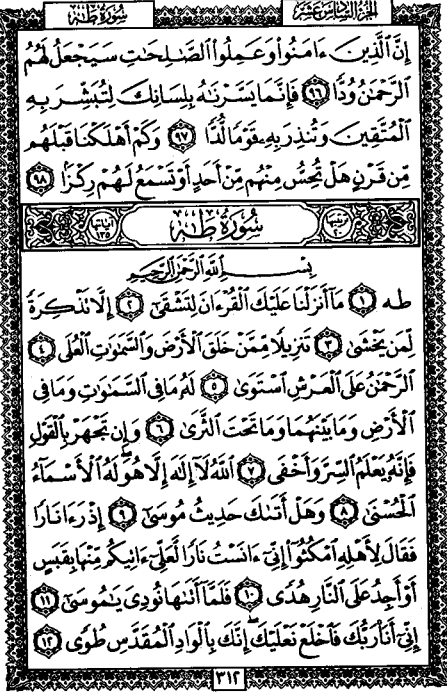 الجزء السادس عشر
سُورَةُ طه
إِنَّ ٱلَّذِينَ ءَامَنُوا۟ وَعَمِلُوا۟ ٱلصَّـٰلِحَـٰتِ سَيَجْعَلُ لَهُمُ
ٱلرَّحْمَـٰنُ وُدًّا ٩٦ فَإِنَّمَا يَسَّرْنَـٰهُ بِلِسَانِكَ لِتُبَشِّرَ بِهِ
ٱلْمُتَّقِينَ وَتُنذِرَ بِهِۦ قَوْمًا لُّدًّا ٩٧ وَكَمْ أَهْلَكْنَا قَبْلَهُم
مِّن قَرْنٍ هَلْ تُحِسُّ مِنْهُم مِّنْ أَحَدٍ أَوْ تَسْمَعُ لَهُمْ رِكْزًۢا ٩٨
ترتيبها ٢٠ سُورَةُ طه آياتها ١٣٥
بِسْمِ ٱللَّهِ ٱلرَّحْمَـٰنِ ٱلرَّحِيمِ
طه ١ مَآ أَنزَلْنَا عَلَيْكَ ٱلْقُرْءَانَ لِتَشْقَىٰٓ ٢ إِلَّا تَذْكِرَةً
لِّمَن يَخْشَىٰ ٣ تَنزِيلًا مِّمَّنْ خَلَقَ ٱلْأَرْضَ وَٱلسَّمَـٰوَٰتِ ٱلْعُلَى ٤
ٱلرَّحْمَـٰنُ عَلَى ٱلْعَرْشِ ٱسْتَوَىٰ ٥ لَهُۥ مَا فِى ٱلسَّمَـٰوَٰتِ وَمَا فِى
ٱلْأَرْضِ وَمَا بَيْنَهُمَا وَمَا تَحْتَ ٱلثَّرَىٰ ٦ وَإِن تَجْهَرْ بِٱلْقَوْلِ
فَإِنَّهُۥ يَعْلَمُ ٱلسِّرَّ وَأَخْفَى ٧ ٱللَّهُ لَآ إِلَـٰهَ إِلَّا هُوَ لَهُ ٱلْأَسْمَآءُ
ٱلْحُسْنَىٰ ٨ وَهَلْ أَتَىٰكَ حَدِيثُ مُوسَىٰٓ ٩ إِذْ رَءَا نَارًا
فَقَالَ لِأَهْلِهِ ٱمْكُثُوٓا۟ إِنِّىٓ ءَانَسْتُ نَارًا لَّعَلِّىٓ ءَاتِيكُم مِّنْهَا بِقَبَسٍ
أَوْ أَجِدُ عَلَى ٱلنَّارِ هُدًى ١٠ فَلَمَّآ أَتَىٰهَا نُودِىَ يَـٰمُوسَىٰٓ ١١
إِنِّىٓ أَنَا۠ رَبُّكَ فَٱخْلَعْ نَعْلَيْكَ إِنَّكَ بِٱلْوَادِ ٱلْمُقَدَّسِ طُوًى ١٢
٣١٢